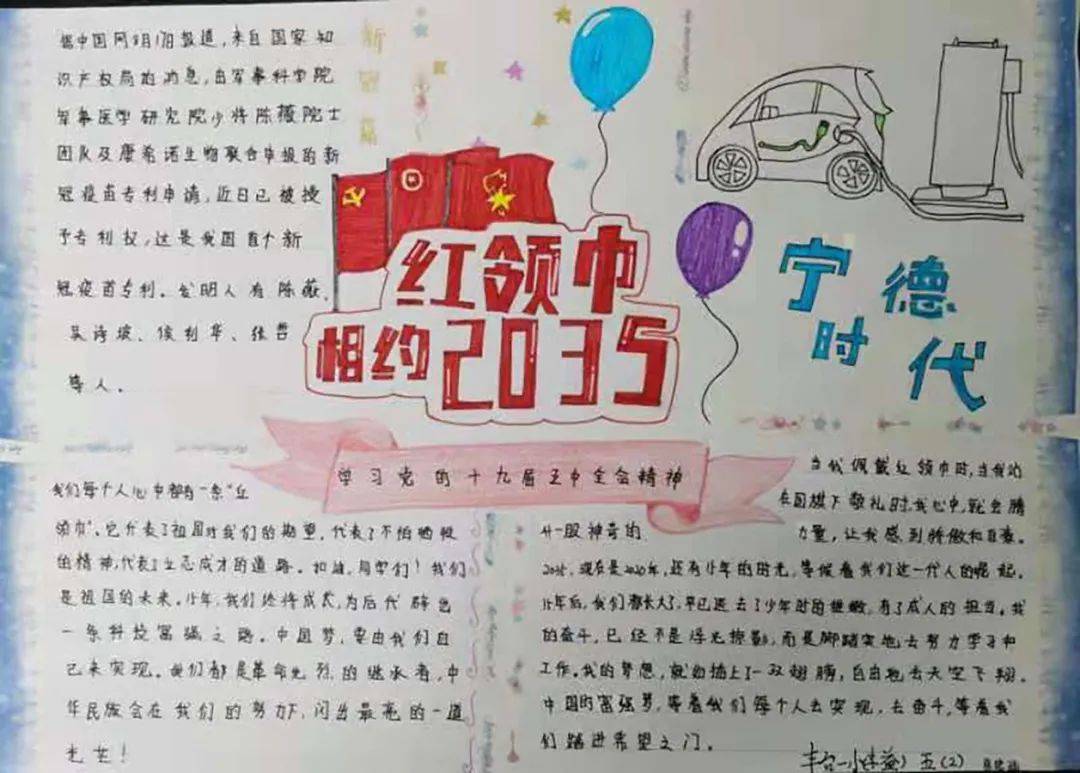 据中国网8月17日报道，来自国家知
识产权局的消息，由军事科学院
军事医学研究院少将陈薇院士
团队及康希诺生物联合申报的新
冠疫苗专利申请，近日已被授
予专利权，这是我国首个新
冠疫苗专利。发明人有陈薇、
吴诗坡、侯利华、张哲
等人。
新冠苗
红领巾
相约2035
宁德
时代
学习党的十九届五中全会精神
我们每个人心中都有一条“红
领巾”。它代表了祖国对我们的期望，代表了不怕牺牲
的精神，代表了立志成才的道路。加油，同学们！我们
是祖国的未来。15年，我们终将成长，为后代辟出
一条科技富强之路。中国梦，要由我们自
己来实现。我们都是革命先烈的继承者，中
华民族会在我们的努力下，闪出最亮的一道
光芒！
当我佩戴红领巾时，当我站
在国旗下敬礼时，我心中就会腾
升一股神奇的力量，让我感到骄傲和自豪。
2035，现在是2020年，还有15年的时光，等候着我们这一代人的崛起。
15年后，我们都长大了，早已退去了少年时的稚嫩，有了成人的担当。我
的奋斗，已经不是浮光掠影，而是脚踏实地去努力学习和
工作。我的梦想，就如插上了一双翅膀，自由地去天空飞翔。
中国的富强梦，等着我们每个人去实现，去奋斗，等着我
们踏进希望之门。
丰台一小 五(2)